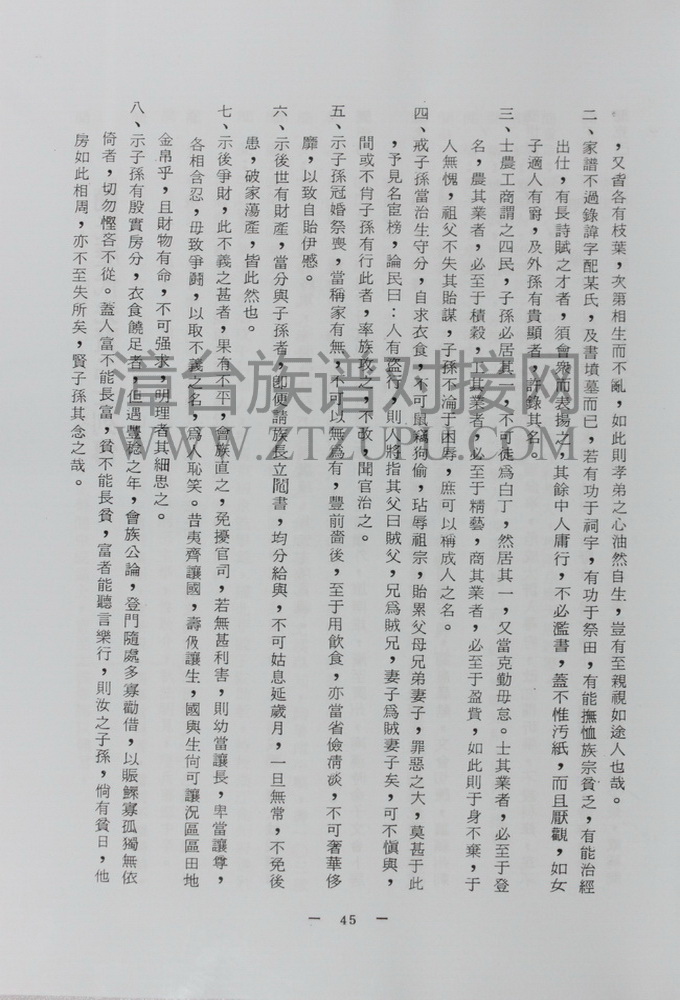 ，又沓各有枝葉，次第相生而不亂，如此則孝弟之心油然自生，豈有至親視如途人也哉。
二、家譜不過錄諱字配某氏，及書墳墓而已，若有功于祠宇，有功于祭田，有能撫恤族宗貧乏，有能治經
出仕，有長詩賦之才者，須會衆而表揚之，其餘中人庸行，不必濫書，蓋不惟汚紙，而且厭觀，如女
子適人有爵，及外孫有貴顯者，許錄其名。
三、士農工商謂之四民，子孫必居其一，不可徒爲白丁，然居其一，又當克勤毋怠。士其業者，必至于登
名，農其業者，必至于積穀，工其業者，必至于精藝，商其業者，必至于盈貲，如此則于身不棄，于
人無愧，祖父不失其貽謀，子孫不淪于困辱，庶可以稱成人之名。
四、戒子孫當治生守分，自求衣食，不可鼠竊狗偷，玷辱祖宗，貽累父母兄弟妻子，罪惡之大，莫甚于此
，予見名宦榜，諭民曰：人有盜行，則人將指其父曰賊父，兄爲賊兄，妻子爲賊妻子矣，可不愼與，
間或不肖子孫有行此者，率族攻之，不改，聞官治之。
五、示子孫冠婚祭喪，當稱家有無，不可以無爲有，豐前嗇後，至于用飲食，亦當省儉淸淡，不可奢華侈
靡，以致自貽伊慼。
六、示後世有財產，當分與子孫者，卽便請族長立鬮書，均分給與，不可姑息延歲月，一旦無常，不免後
患，破家蕩產，皆此然也。
七、示後爭財，此不義之甚者，果有不平，會族直之，免擾官司，若無甚利害，則幼當讓長，卑當讓尊，
各相含忍，毋致爭鬪，以取不義之名，爲人恥笑。昔夷齊讓國，壽伋讓生，國與生尙可讓況區區田地
金帛乎，且財物有命，不可强求，明理者其細思之。
八、示子孫有殷實房分，衣食饒足者，但遇豐稔之年，會族公論，登門隨處多寡勸借，以賑鰥寡孤獨無依
倚者，切勿慳吝不從。蓋人富不能長富，貧不能長貧，富者能聽言樂行，則汝之子孫，倘有貧日，他
房如此相周，亦不至失所矣，賢子孫其念之哉。
— 45 —
漳台族谱对接网
WWW.ZTZUPU.COM